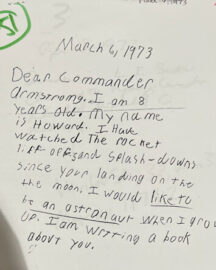 March 6, 1973
Dear Commander
Armstrong. I am 8
years old. My name
is Howard. I Have
watched the rocket
liff offs and splash-downs
since your landing on the
the moon. I would like to
be an astronaut when I grow
up. I am writing a book
about you.